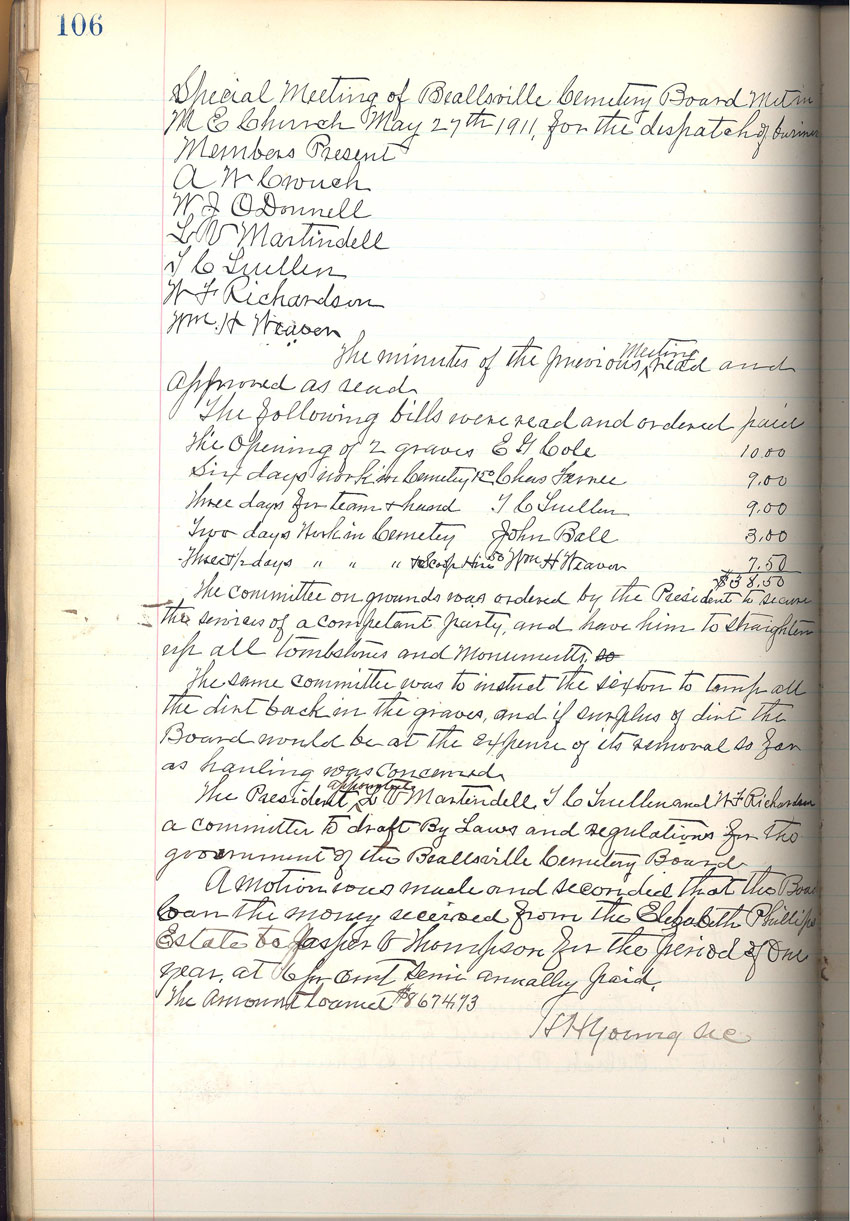 106
Special Meeting of Beallsville Cemetery Board Met in
M E Church May 27th 1911, for the dispatch of
Members Present
A W Crouch
W J ODonnell
L W Martindell
T C Luellen
W F Richardson
Wm. H Weaver
The minutes of the previous Meeting read and
approved as read
The following bills were read and ordered paid
The Opening of 2 graves E G Cole 10.00
Six days work in Cemetery 1.50 Chas 9.00
Three days for team + hand T C Luellen 9.00
Two days Work in Cemetery John Ball 3.00
Three 1/2 days " " " + Hire 50 Wm H Weaver 7.50
$38.50
The committee on grounds was ordered by the President to secure
the services of a competant party, and have him to straighten
up all tombstones and Monuments, so
The same committee was to instruct the sexton to tamp all
the dirt back in the graves, and if surplus of dirt the
Board would be at the expense of its removal so far
as hauling was concerned
The President appointed L W Martindell, T C Luellen and W F Richardson
a committee to draft By Laws and regulations for the
government of the Beallsville Cemetery Board
A motion was made and seconded that the Boa
loan the money received from the Elizabeth Phillips
Estate to Jasper Thompson for the period of One
year, at 6 per cent Semi annually paid,
The Amount loaned $867473
Young Sec